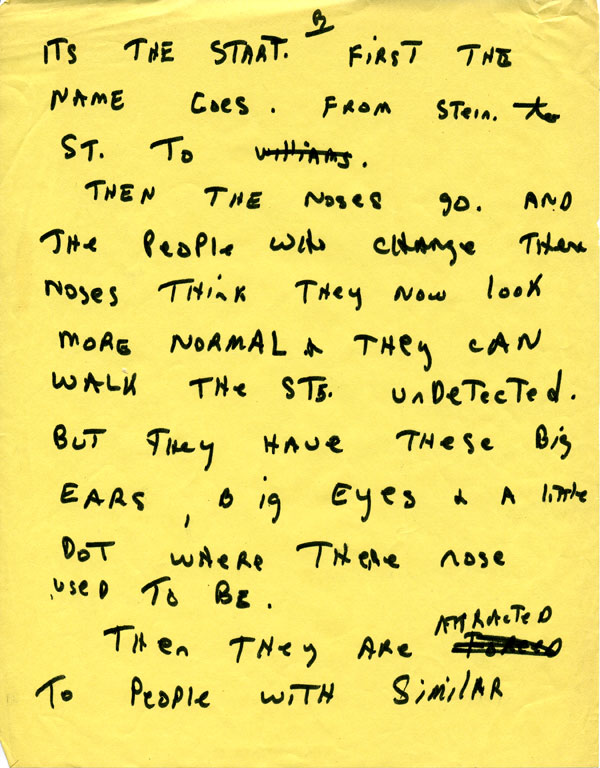 ITS THE START. FIRST THE
NAME GOES. FROM STEIN.
ST. TO Williams.
THEN THE NOSES GO. AND
THE PEOPLE WHO CHANGE THERE
NOSES THINK THEY NOW LOOK
MORE NORMAL & THEY CAN
WALK THE STS. UNDETECTED.
BUT THEY HAVE THESE BIG
EARS, BIG EYES & A little
DOT WHERE THERE NOSE
USED TO BE.
THEN THEY ARE ATTRACTED
TO PEOPLE WITH SIMILAR